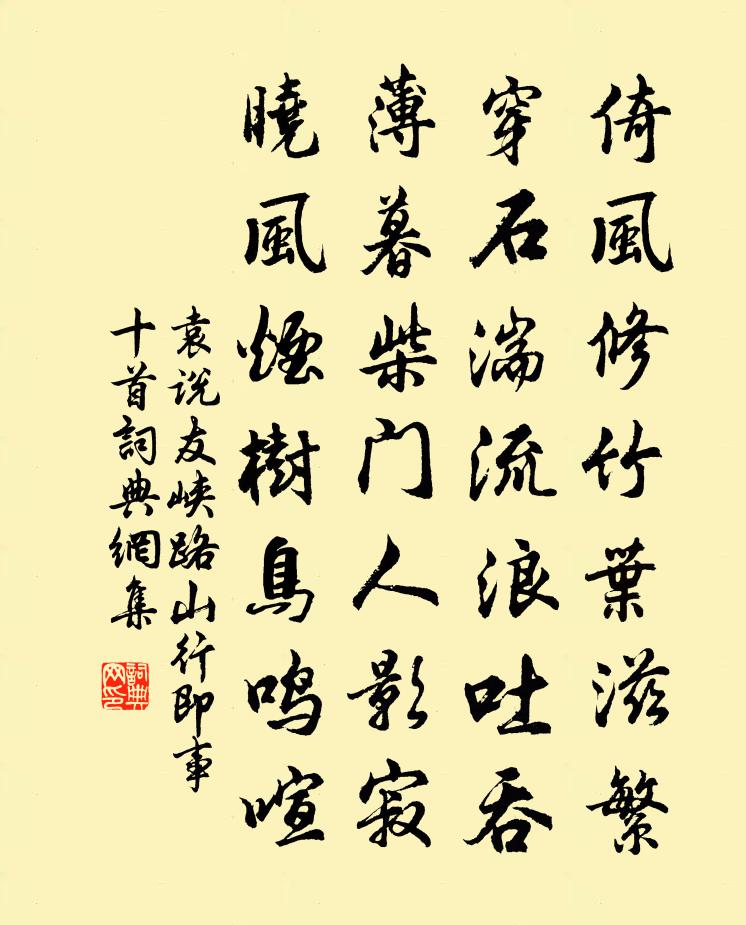 倚風修竹葉滋繁
穿石湍流浪吐吞
薄暮柴门人影寂
曉風煙樹鳥鳴喧
袁说友峡路山行即事
十首詞典網集
詞典網印